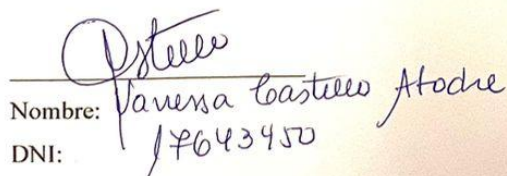 Castillo
Nombre: Vanessa Castillo Atoche
DNI: 17643450